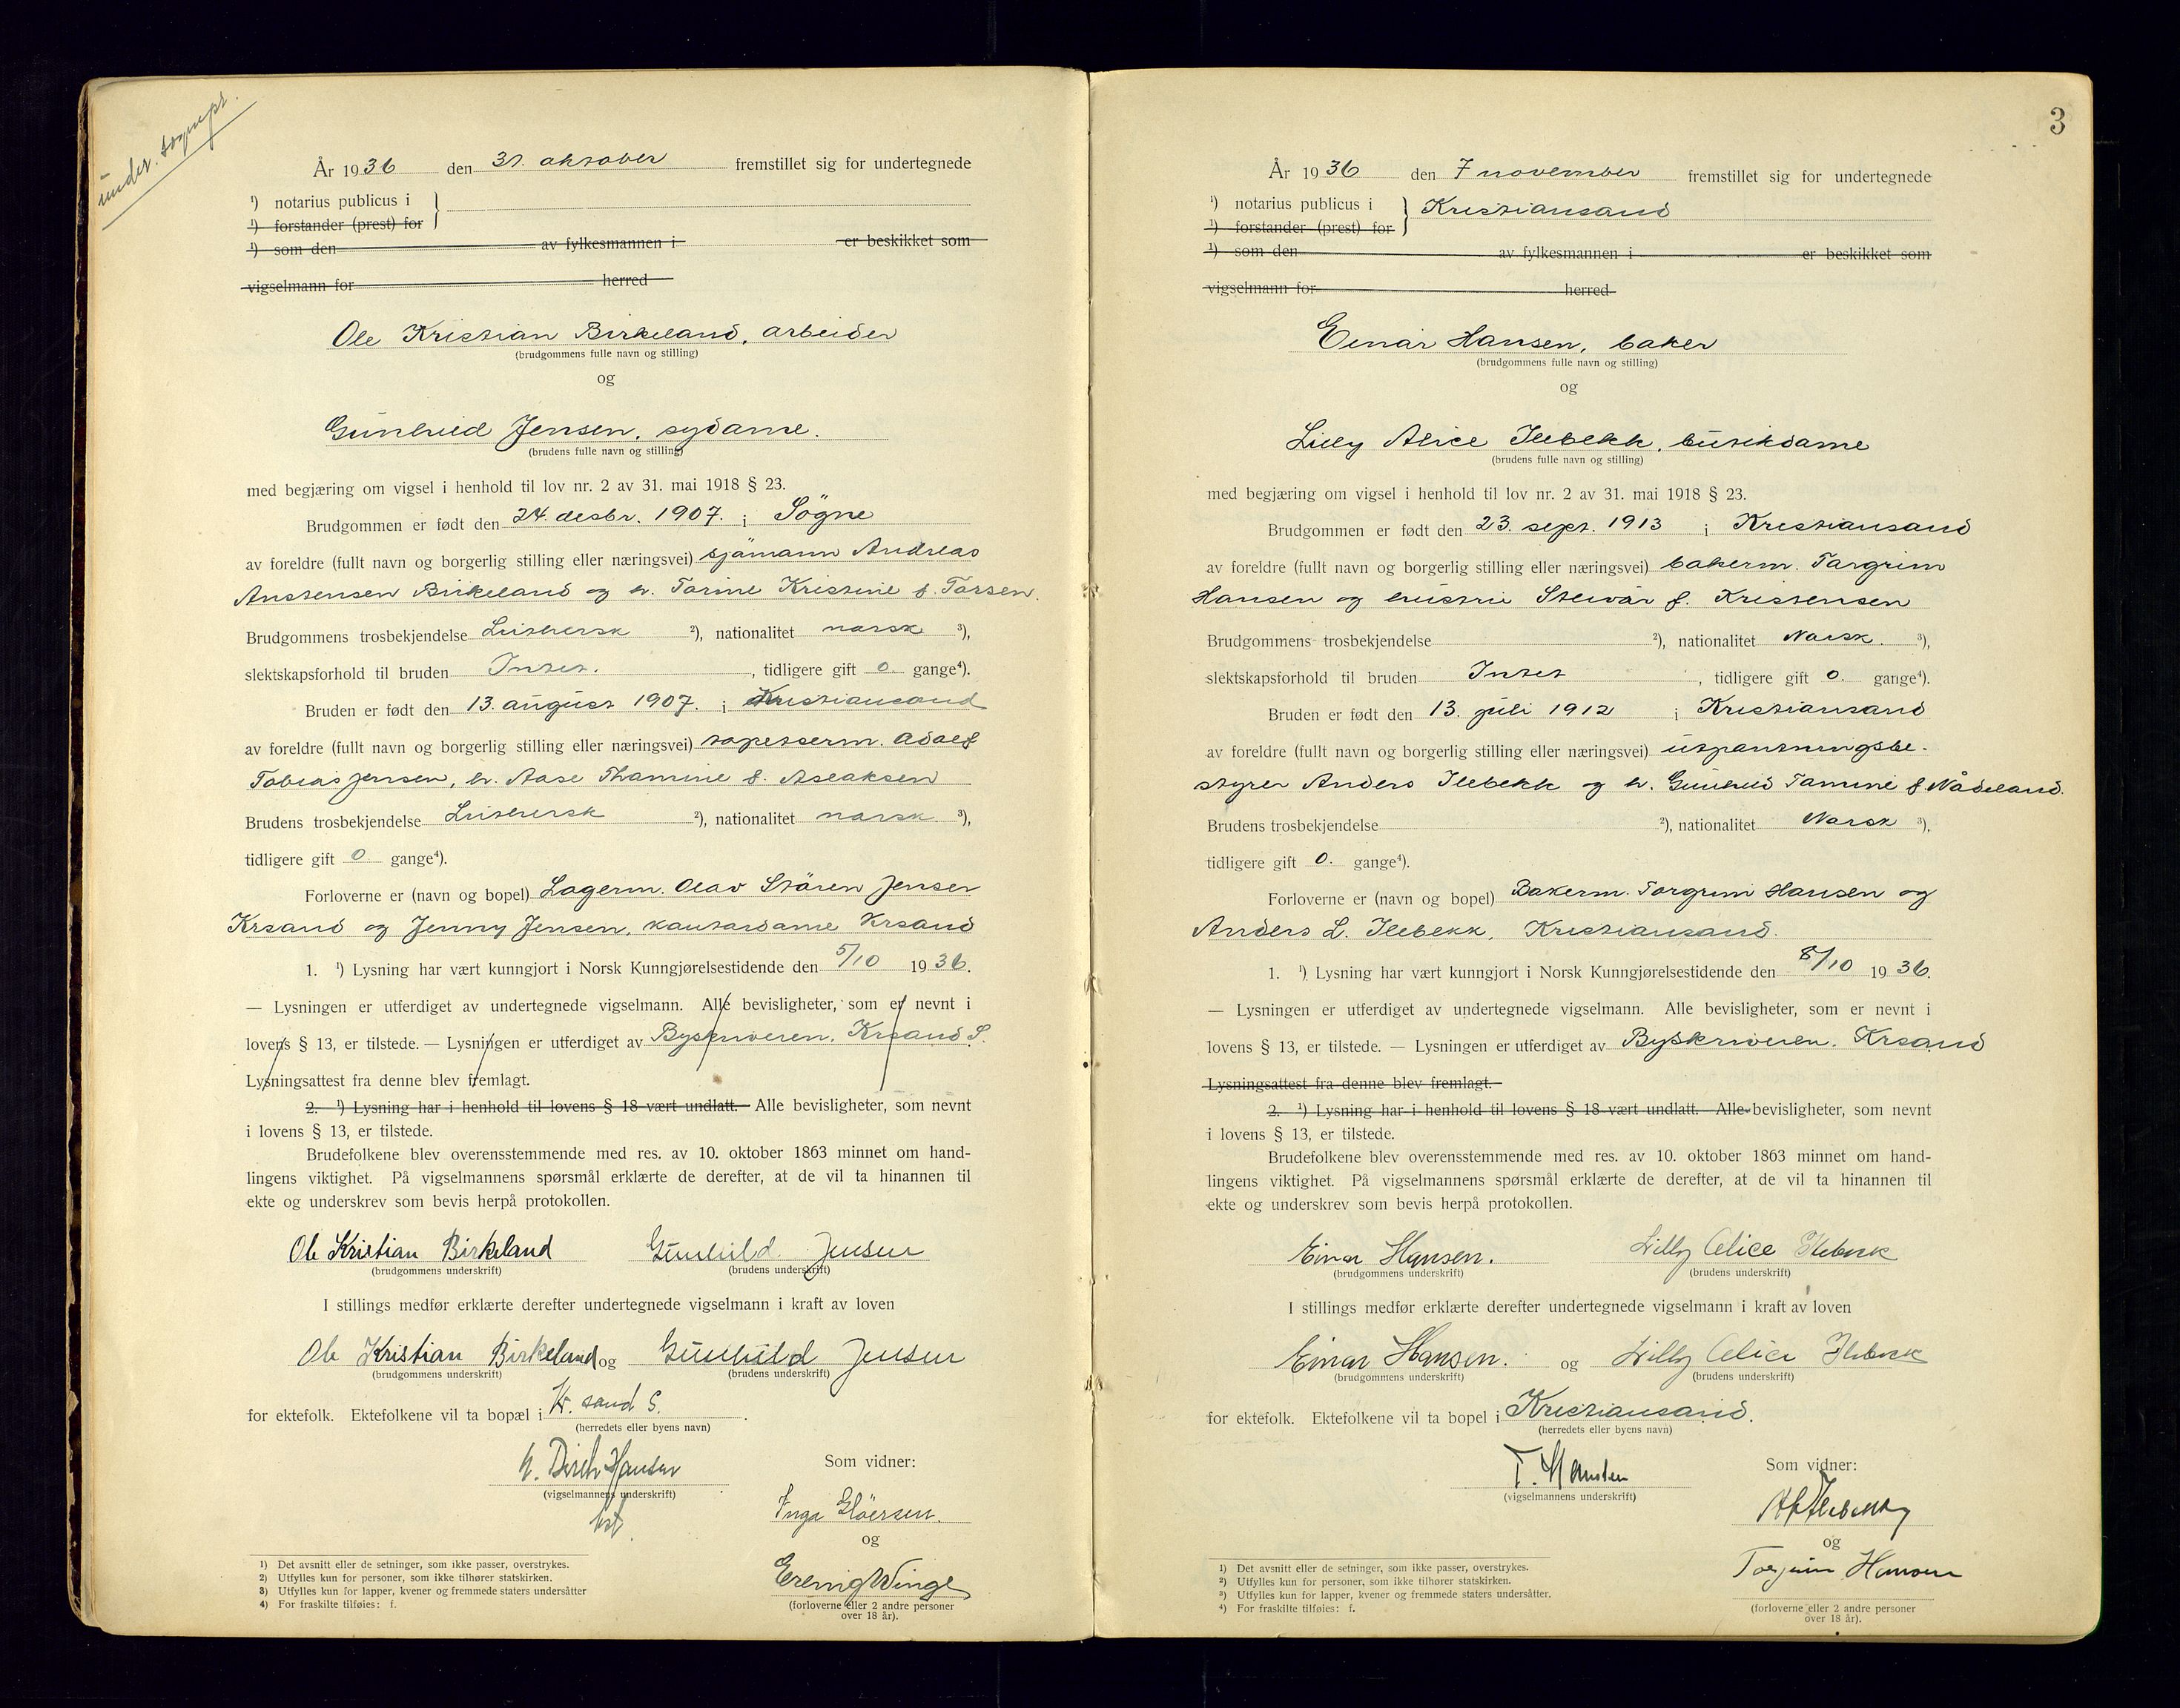 under. sognepr.
År 1936 den 31. oktober fremstillet sig for undertegnede
¹) notarius publicus i
¹) forstander (prest) for
¹) som den av fylkesmannen i er beskikket som
vigselmann for herred
Ole Kristian Birkeland, arbeider
(brudgommens fulle navn og stilling)
og
Gunhild Jensen, sydame.
(brudens fulle navn og stilling)
med begjæring om vigsel i henhold til lov nr. 2 av 31. mai 1918 § 23.
Brudgommen er født den 24. desbr. 1907. i Søgne
av foreldre (fullt navn og borgerlig stilling eller næringsvei) sjømann Andreas
Anstensen Birkeland og h. Torine Kristine f. Torsen.
Brudgommens trosbekjendelse Luthersk ²), nationalitet norsk ³),
slektskapsforhold til bruden Intet. , tidligere gift 0 gange⁴).
Bruden er født den 13. august 1907. i Kristiansand
av foreldre (fullt navn og borgerlig stilling eller næringsvei) tapetserm. Adolf
Tobias Jensen, h. Aase Thomine f. Aslaksen
Brudens trosbekjendelse Luthersk ²), nationalitet norsk ³),
tidligere gift 0 gange⁴).
Forloverne er (navn og bopel) Lagerm. Olav Støren Jensen
Krsand og Jenny Jensen, kontordame Krsand
1. ¹) Lysning har vært kunngjort i Norsk Kunngjørelsestidende den 5/10 1936.
— Lysningen er utferdiget av undertegnede vigselmann. Alle bevisligheter, som er nevnt i
lovens § 13, er tilstede. — Lysningen er utferdiget av Byskriveren, Krsand S.
Lysningsattest fra denne blev fremlagt.
2. ¹) Lysning har i henhold til lovens § 18 vært undlatt. Alle bevisligheter, som nevnt
i lovens § 13, er tilstede.
Brudefolkene blev overensstemmende med res. av 10. oktober 1863 minnet om hand-
lingens viktighet. På vigselmannens spørsmål erklærte de derefter, at de vil ta hinannen til
ekte og underskrev som bevis herpå protokollen.
Ole Kristian Birkeland Gunhild Jensen
(brudgommens underskrift) (brudens underskrift)
I stillings medfør erklærte derefter undertegnede vigselmann i kraft av loven
Ole Kristian Birkeland og Gunhild Jensen
(brudgommens underskrift) (brudens underskrift)
for ektefolk. Ektefolkene vil ta bopæl i Kr. sand S.
(herredets eller byens navn)
Birch Hansen
(vigselmannens underskrift)
Som vidner:
Inga Gløersen.
og
Erling Winge
(forloverne eller 2 andre personer
over 18 år).
1) Det avsnitt eller de setninger, som ikke passer, overstrykes.
2) Utfylles kun for personer, som ikke tilhører statskirken.
3) Utfylles kun for lapper, kvener og fremmede staters undersåtter
4) For fraskilte tilføies: f.
3
År 1936 den 7 november fremstillet sig for undertegnede
¹) notarius publicus i Kristiansand
¹) forstander (prest) for
¹) som den av fylkesmannen i er beskikket som
vigselmann for herred
Einar Hansen, baker
(brudgommens fulle navn og stilling)
og
Lilly Alice Ilebekk, butikdame
(brudens fulle navn og stilling)
med begjæring om vigsel i henhold til lov nr. 2 av 31. mai 1918 § 23.
Brudgommen er født den 23. sept. 1913 i Kristiansand
av foreldre (fullt navn og borgerlig stilling eller næringsvei) bakerm. Torgrim
Hansen og hustru Steivor f. Kristensen
Brudgommens trosbekjendelse ²), nationalitet Norsk. ³),
slektskapsforhold til bruden Intet , tidligere gift 0. gange⁴).
Bruden er født den 13. juli 1912 i Kristiansand
av foreldre (fullt navn og borgerlig stilling eller næringsvei) utpantningsbe-
styrer Anders Ilebekk og h. Gunhild Tomine f. Nådeland.
Brudens trosbekjendelse ²), nationalitet Norsk ³),
tidligere gift 0. gange⁴).
Forloverne er (navn og bopel) Bakerm. Torgrim Hansen og
Anders L. Ilebekk, Kristiansand.
1. ¹) Lysning har vært kunngjort i Norsk Kunngjørelsestidende den 8/10 1936.
— Lysningen er utferdiget av undertegnede vigselmann. Alle bevisligheter, som er nevnt i
lovens § 13, er tilstede. — Lysningen er utferdiget av Byskriveren. Krsand
Lysningsattest fra denne blev fremlagt.
2. ¹) Lysning har i henhold til lovens § 18 vært undlatt. Alle bevisligheter, som nevnt
i lovens § 13, er tilstede.
Brudefolkene blev overensstemmende med res. av 10. oktober 1863 minnet om hand-
lingens viktighet. På vigselmannens spørsmål erklærte de derefter, at de vil ta hinannen til
ekte og underskrev som bevis herpå protokollen.
Einar Hansen. Lilly Alice Ilebekk
(brudgommens underskrift) (brudens underskrift)
I stillings medfør erklærte derefter undertegnede vigselmann i kraft av loven
Einar Hansen. og Lilly Alice Ilebekk
(brudgommens underskrift) (brudens underskrift)
for ektefolk. Ektefolkene vil ta bopel i Kristiansand.
(herredets eller byens navn)
(vigselmannens underskrift)
Som vidner:
og
Torgrim Hansen
(forloverne eller 2 andre personer
over 18 år).
¹) Det avsnitt eller de setninger, som ikke passer, overstrykes.
²) Utfylles kun for personer, som ikke tilhører statskirken.
³) Utfylles kun for lapper, kvener og fremmede staters undersåtter.
⁴) For fraskilte tilføies: f.